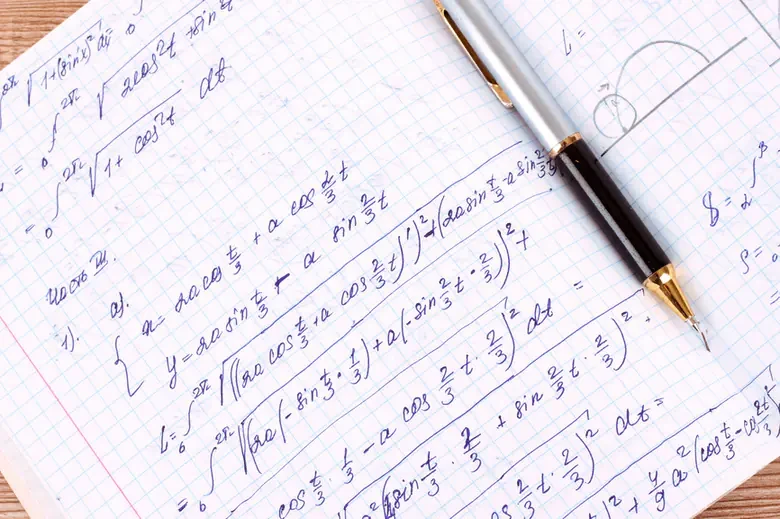 ∫₀^{2π} √(1+(sin'x)²) dx = ∫₀
= ∫₀^{2π} √(2cos²t + sin²t
= ∫₀^{2π} √(1+cos²t) dt
Часть III.
1). а).
{ x = 2a cos t/3 + a cos 2/3 t
y = 2a sin t/3 - a sin 2/3 t
L = ∫₀^{2π} √((2a cos t/3 + a cos 2/3 t)')² + (2a sin t/3 - a sin 2/3 t
= ∫₀^{2π} √(2a(-sin t/3 · 1/3) + a(-sin 2/3 t · 2/3))² +
cos t/3 · 1/3 - a cos 2/3 t · 2/3)² dt =
sin t/3 · 2/3 + sin 2/3 t · 2/3)² +
cos 2/3 t · 2/3)² dt =
)² + 4/9 a² (cos t/3 - cos 2t/3)²
L =
S = ∫
ρ =
=